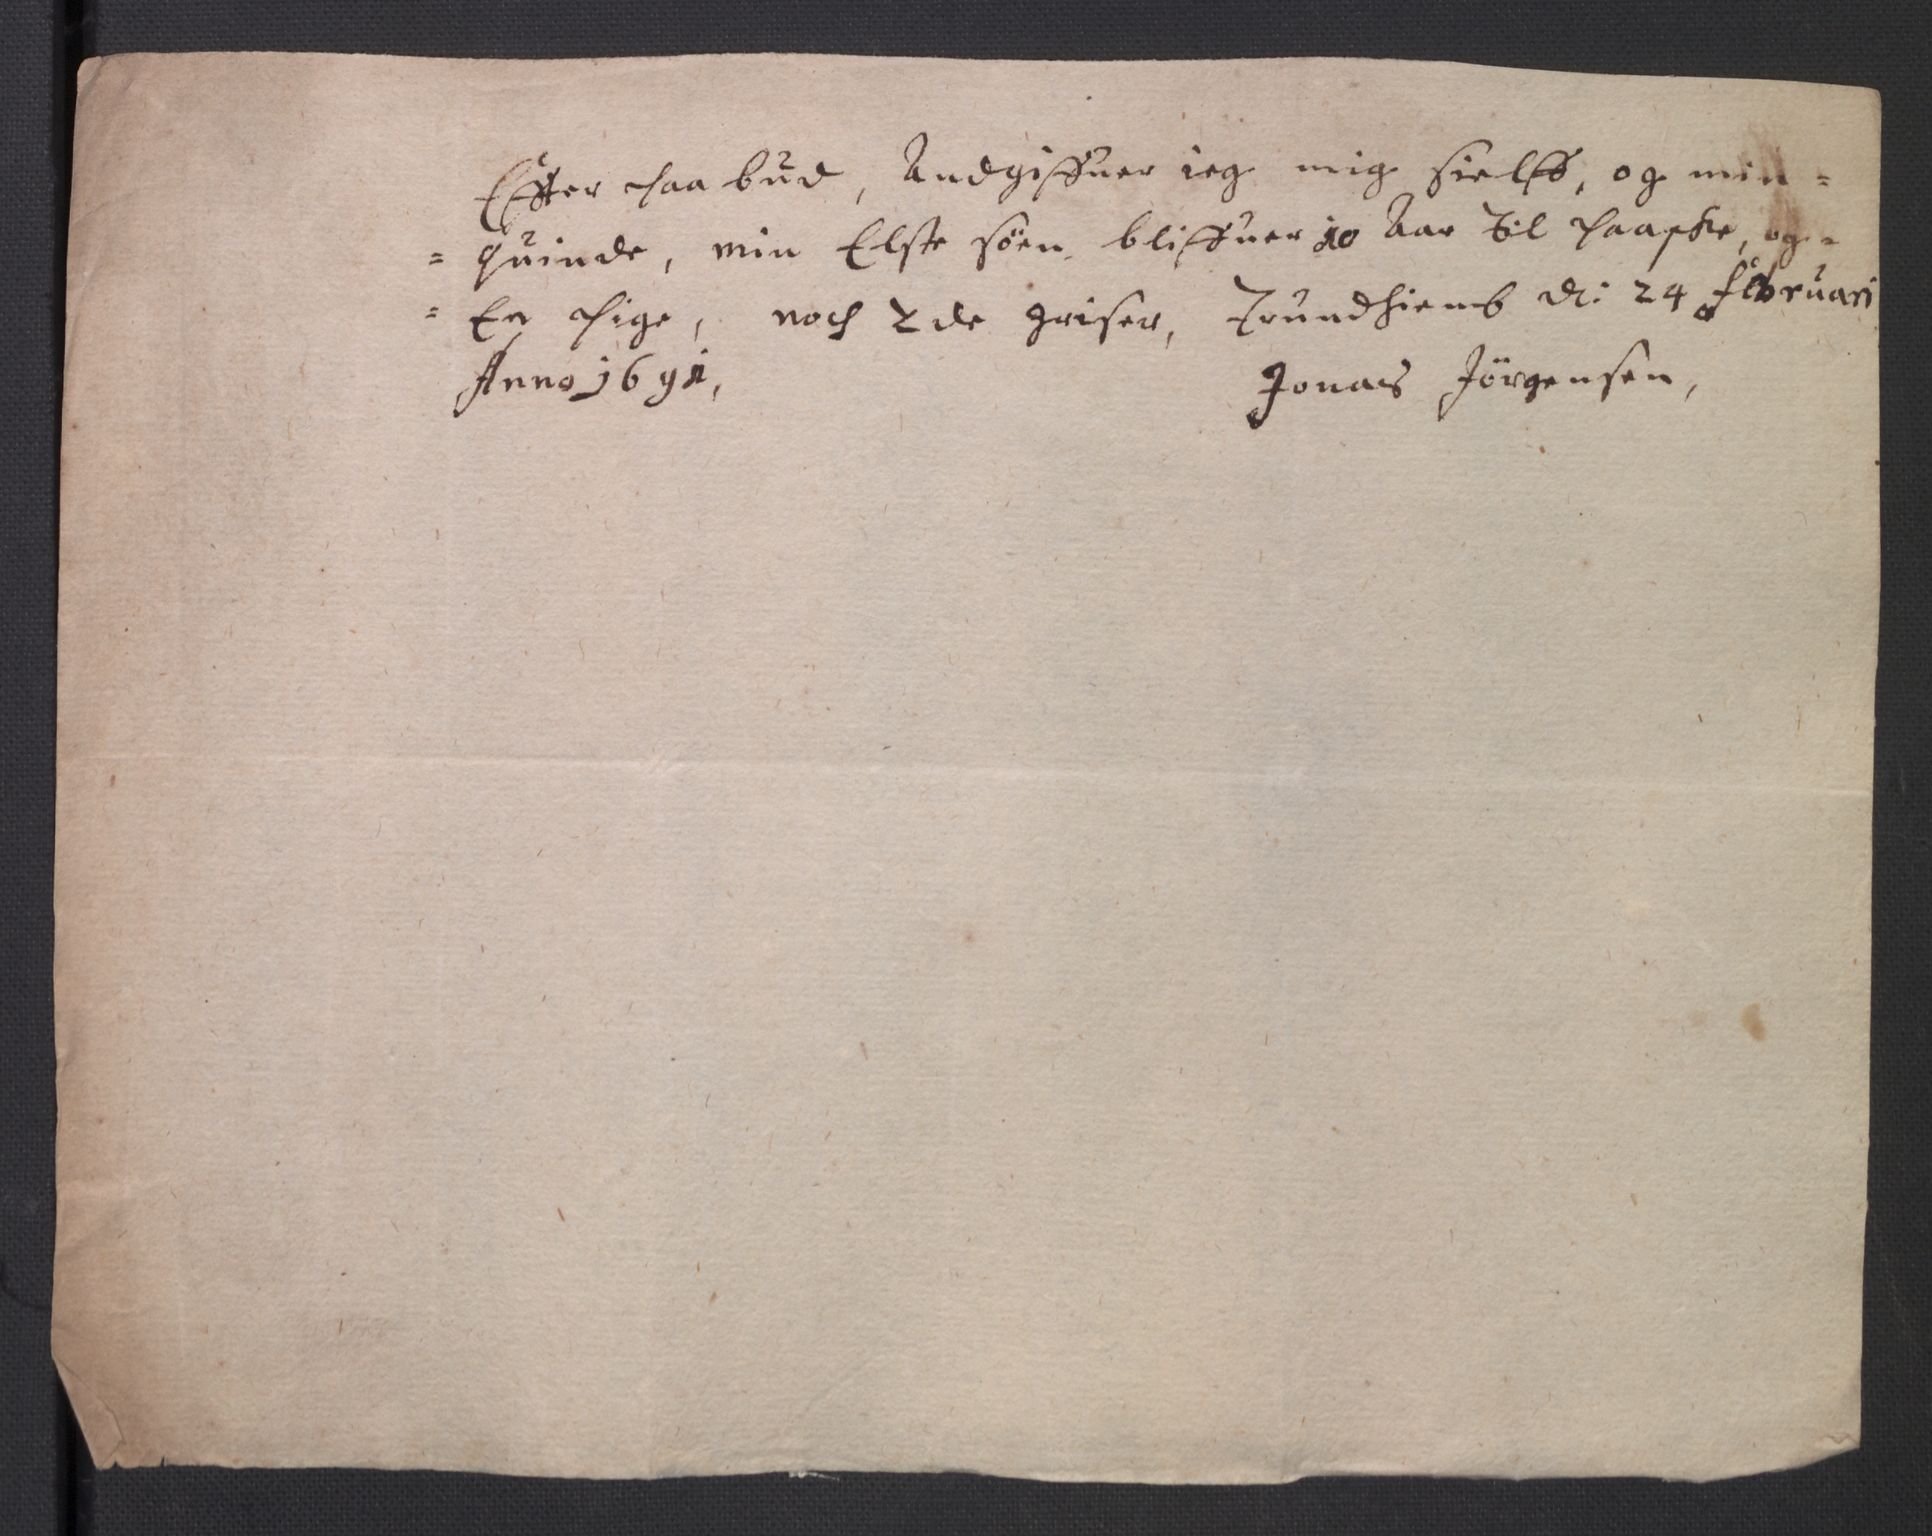 Effter paa bud, Andgiffuer ieg mig sielff, og min=
= quinde, min Elste söen bliffuer 10 Aar til paaske, og=
= En pige, noch 2 de griser, Trundhiemb d: 24 februari
Anno 1691, Jonas Jörgensen,